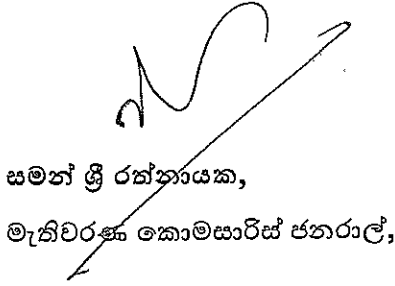 සමන් ශ්‍රී රත්නායක,
මැතිවරණ කොමසාරිස් ජනරාල්,